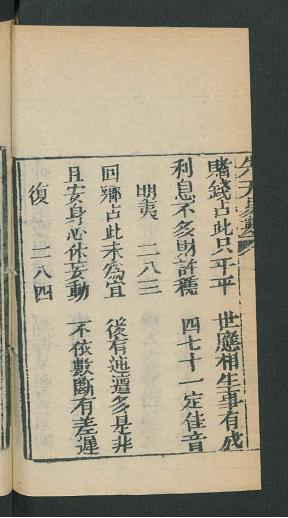 先天易數
賭錢占此只平平 世應相生事有成
利息不多財許穩 四七十一定佳音
明夷 二八三
回鄉占此未為宜 後有迍邅多是非
且安身心休妄動 不依數斷有差遲
復 二八四